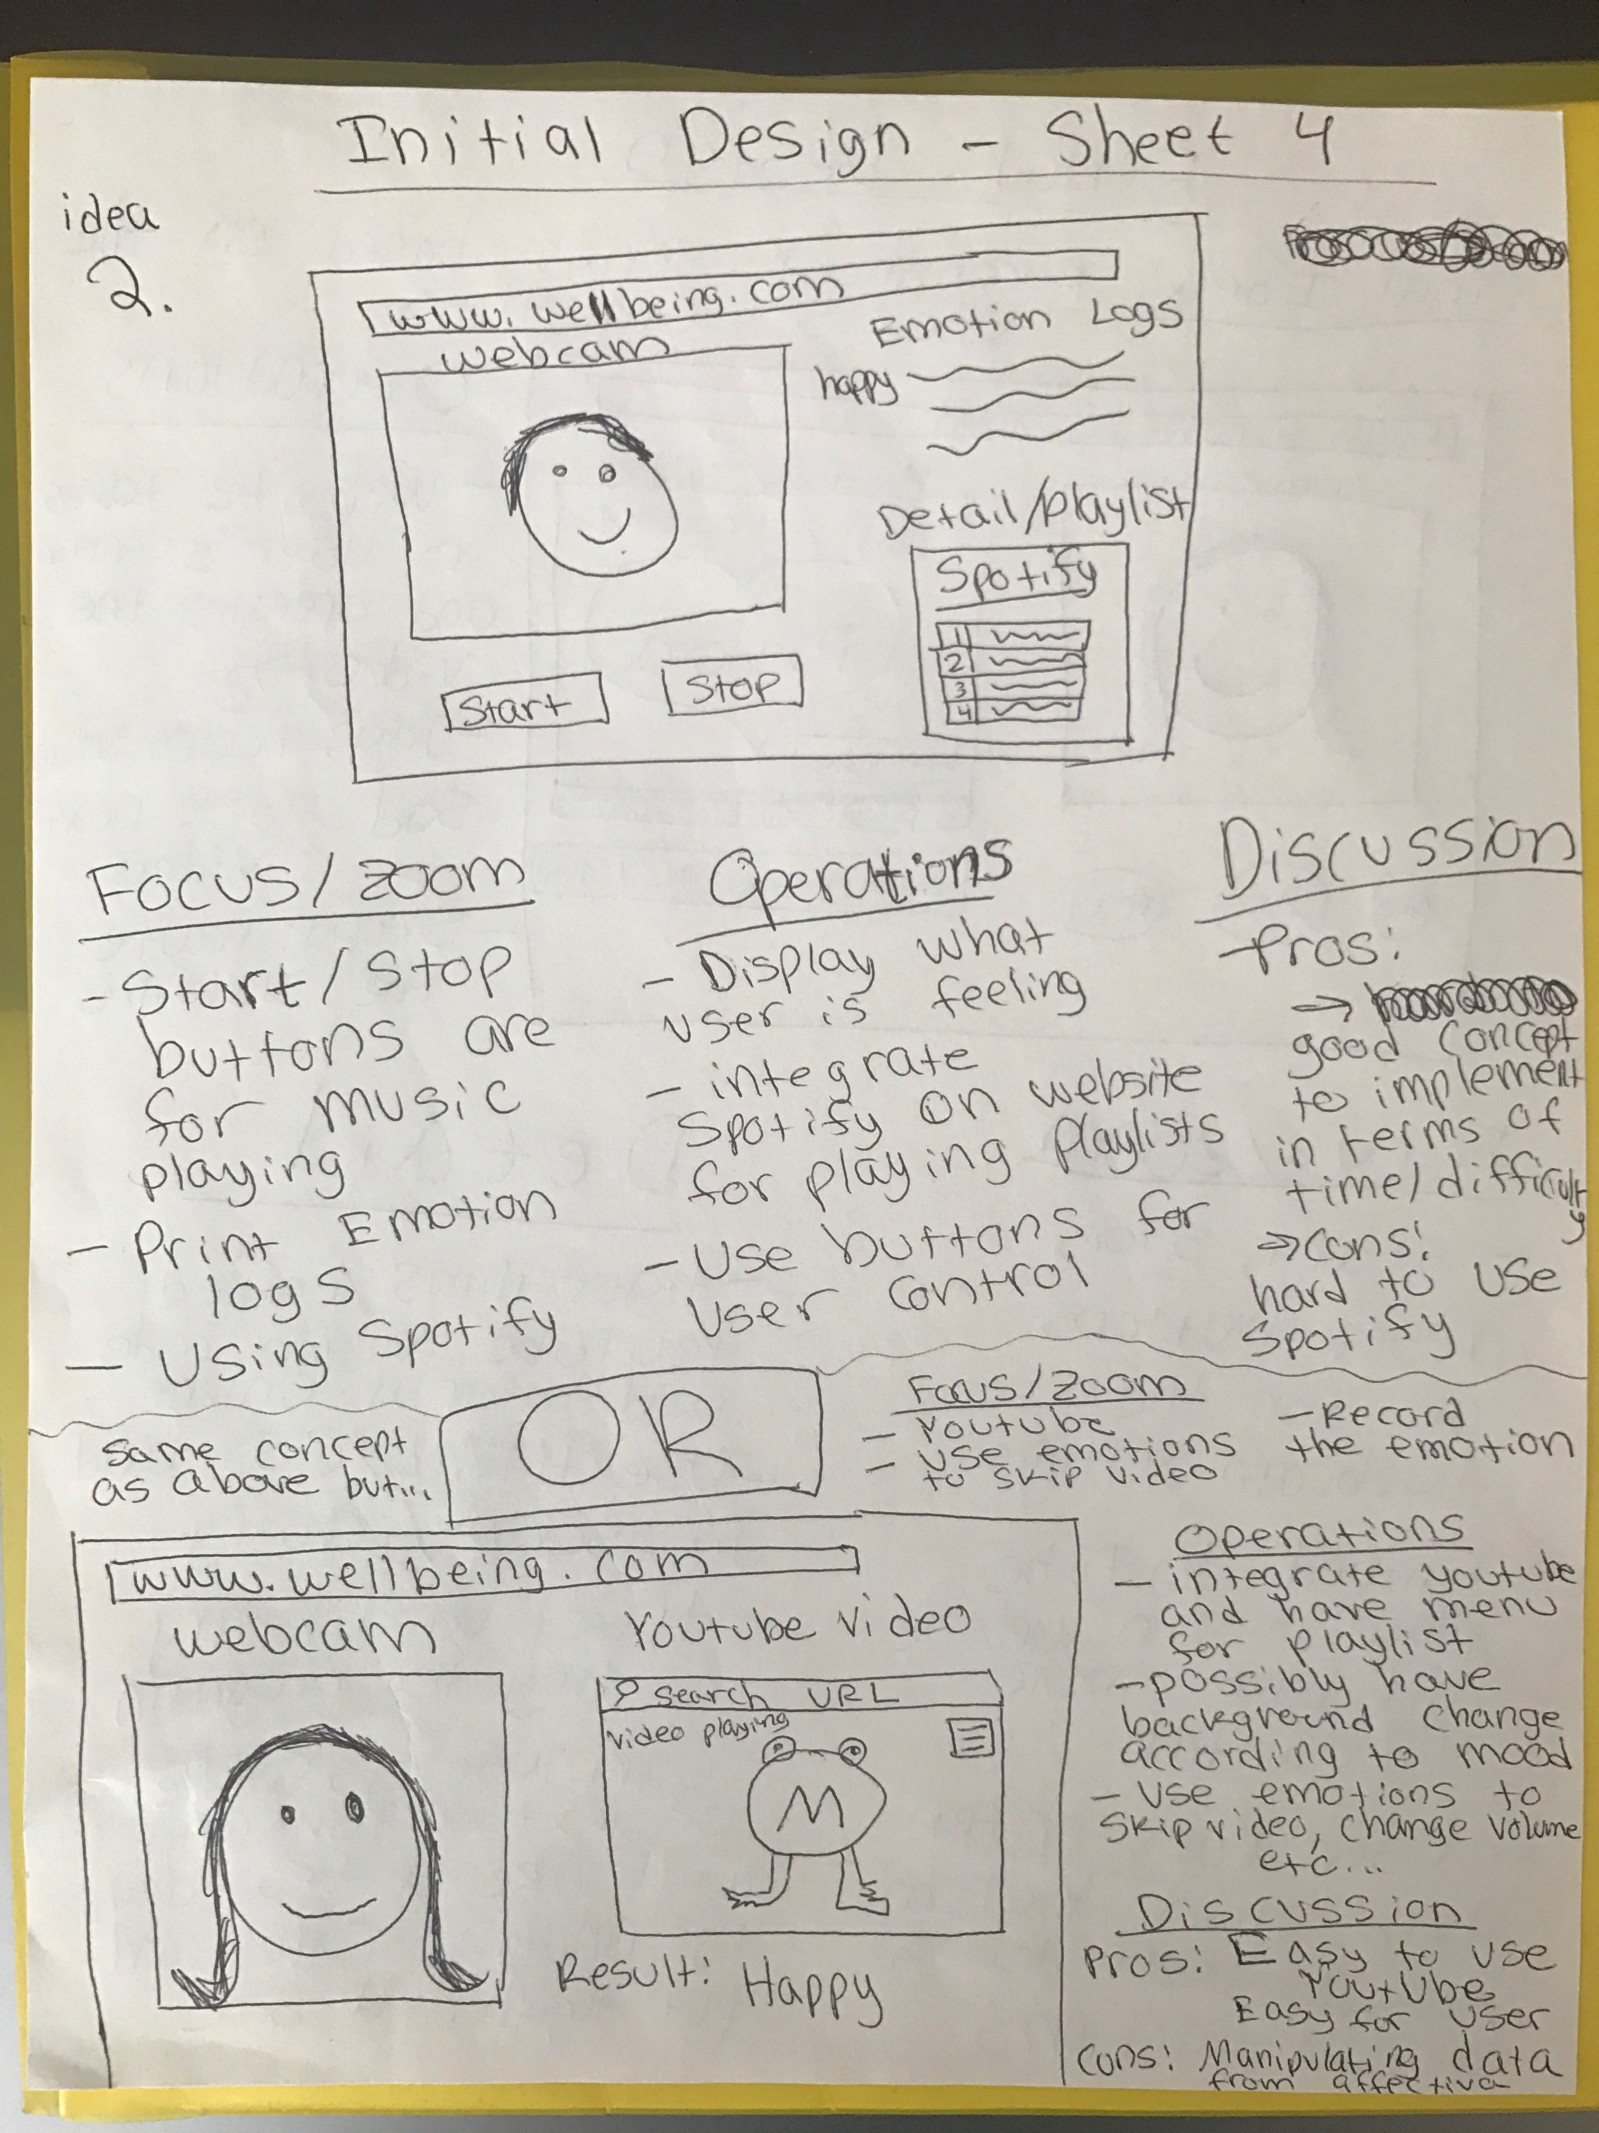 Initial Design - Sheet 4
idea
2.
www.wellbeing.com
webcam
Emotion Logs
happy
Detail/playlist
Spotify
1
2
3
4
Start
Stop
Focus/zoom
- Start/stop
buttons are
for music
playing
- Print Emotion
logs
- Using Spotify
Operations
- Display what
user is feeling
- integrate
Spotify on website
for playing playlists
- Use buttons for
User control
Discussion
- Pros:
→
good concept
to implement
in terms of
time/difficulty
→ cons:
hard to use
Spotify
same concept
as above but...
OR
Focus/zoom
- Youtube
- Use emotions
to skip video
- Record
the emotion
www.wellbeing.com
webcam
Youtube video
search URL
video playing
M
Result: Happy
Operations
- integrate youtube
and have menu
for playlist
- possibly have
background change
according to mood
- Use emotions to
skip video, change volume
etc...
Discussion
Pros: Easy to use
Youtube
Easy for user
Cons: Manipulating data
from affectiva